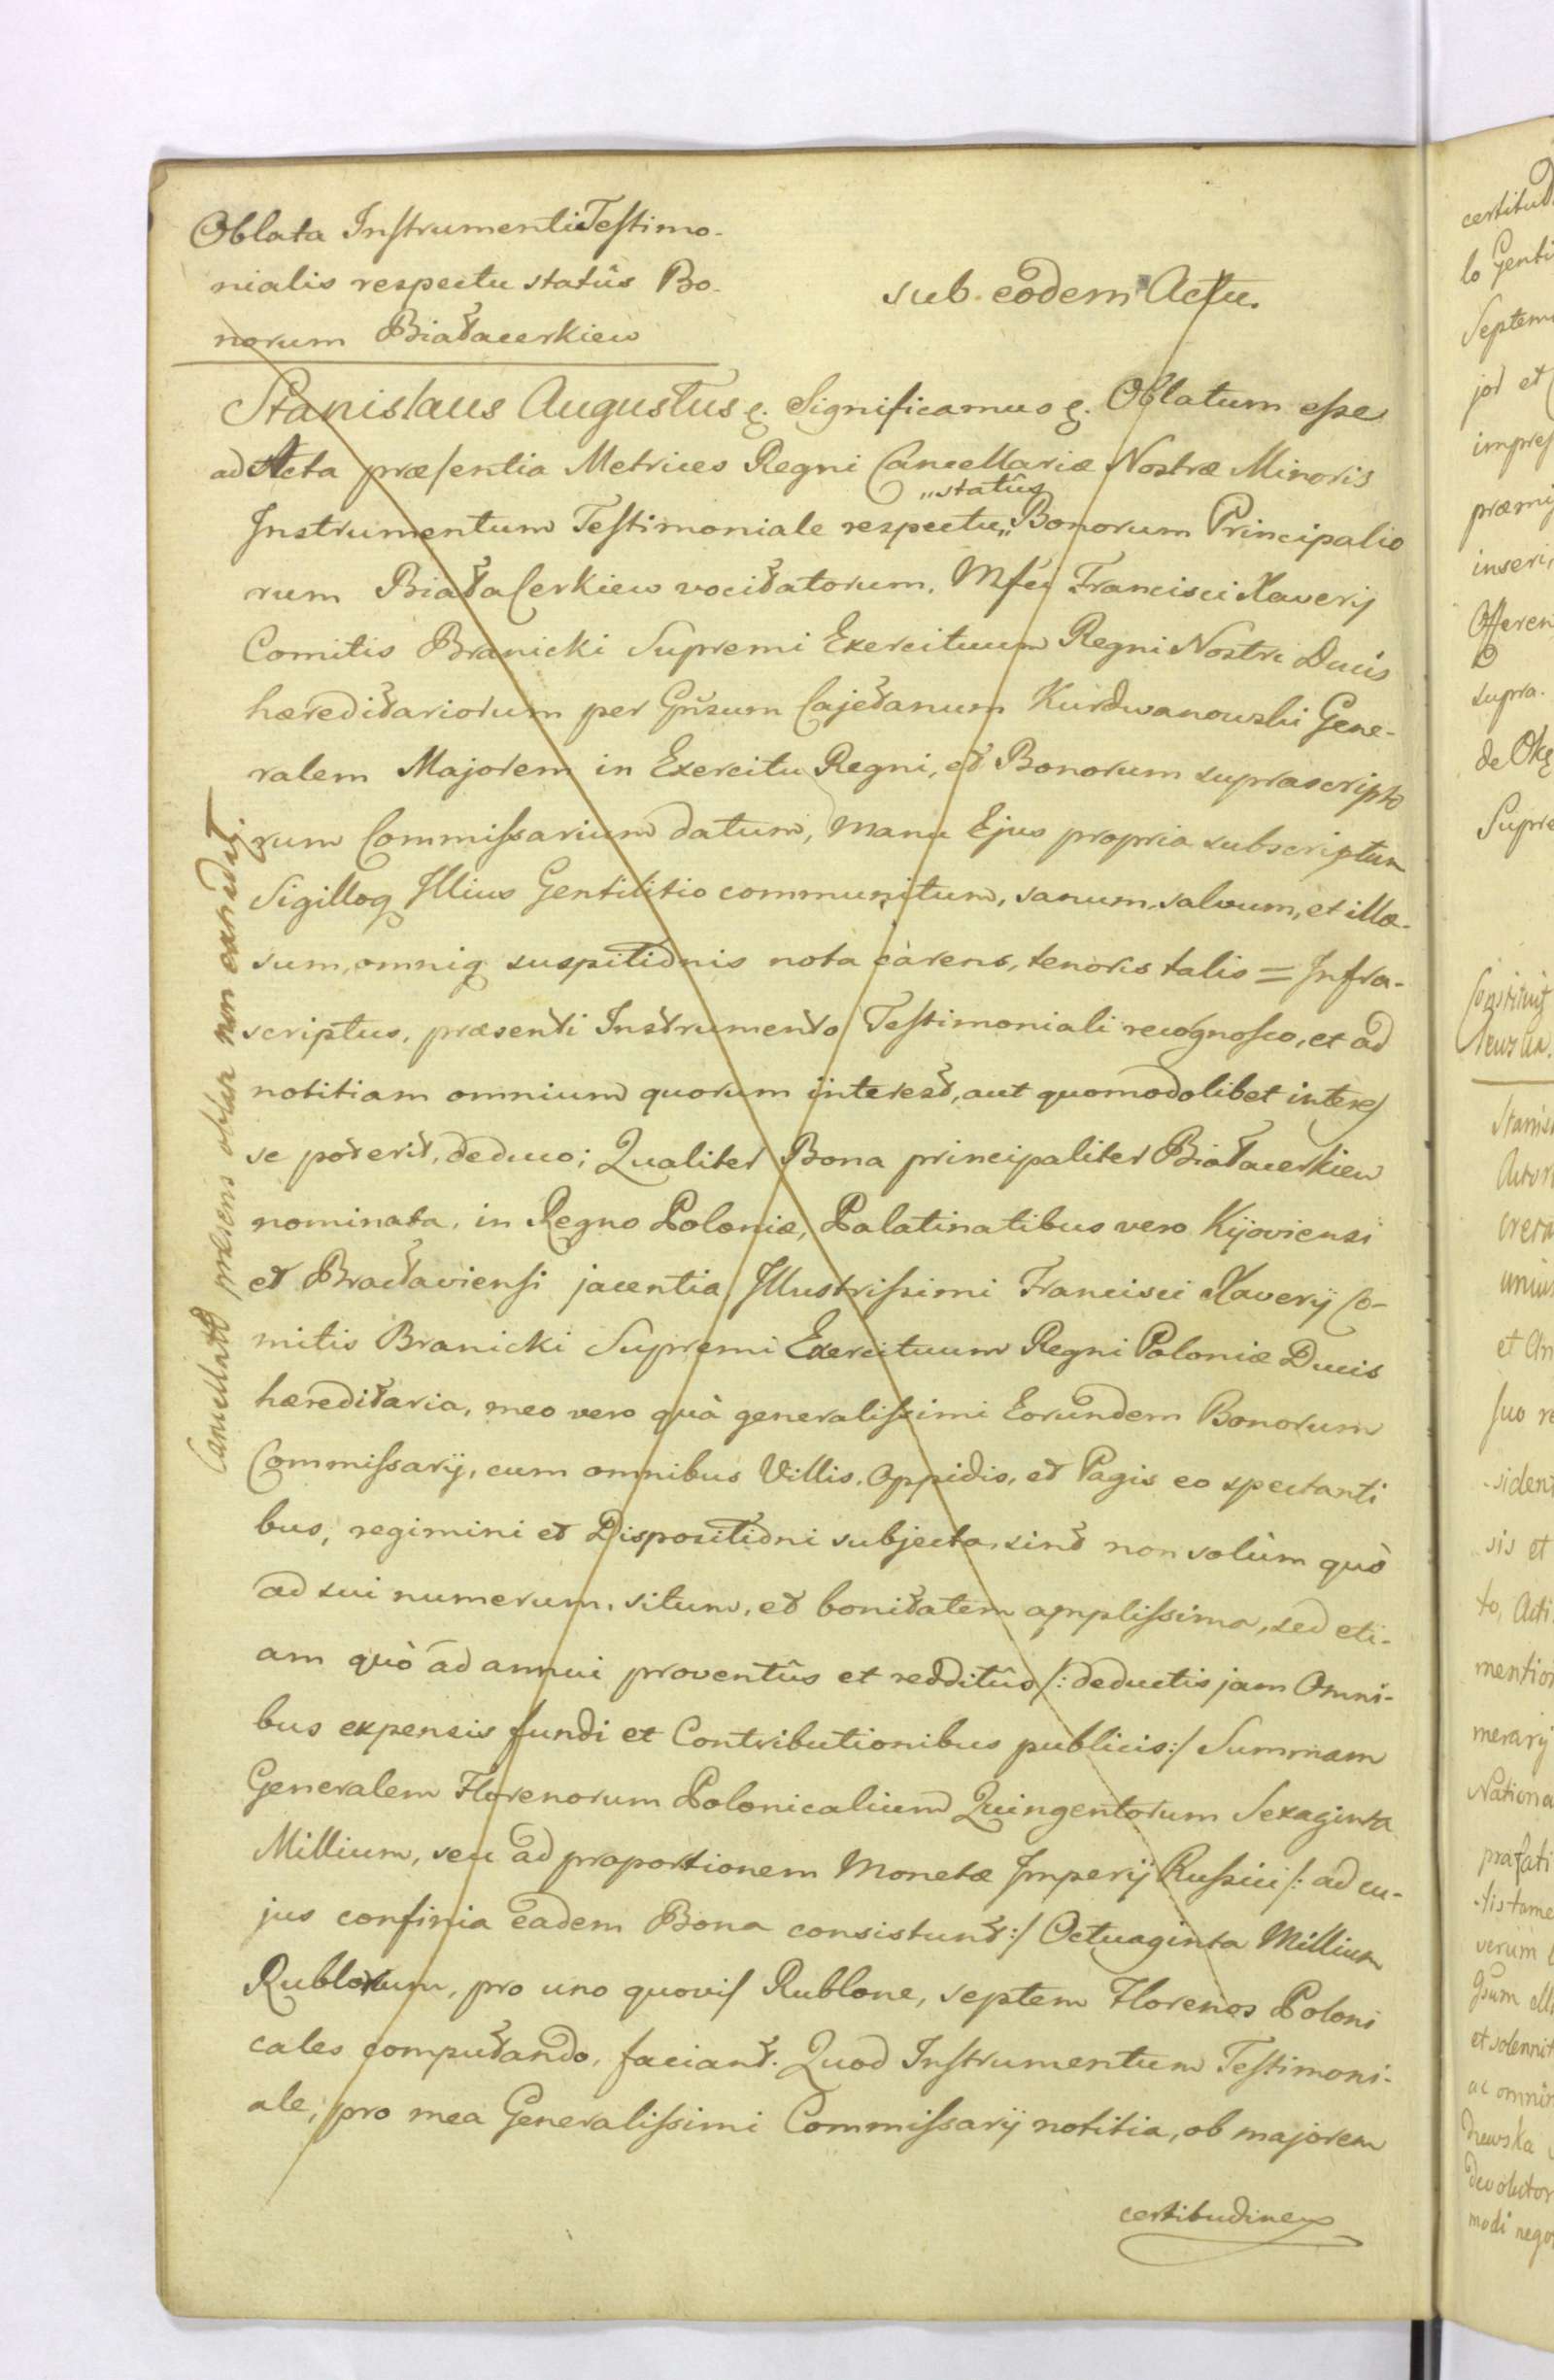 Oblata Instrumenti Testimo-
nialis respectu statûs Bo-
norum Białacerkiew
sub eodem Actu.
Stanislaus Augustus &. Significamus &. Oblatum esse
ad Acta præsentia Metrices Regni Cancellariæ Nostræ Minoris
„statûs
Instrumentum Testimoniale respectu„ Bonorum Principalio
rum BiałaCerkiew vocitatorum, Mfci Francisci Xaverij
Comitis Branicki Supremi Exercituum Regni Nostri Ducis
hæreditariorum per Gñsum Cajetanum Kurdwanowski Gene-
ralem Majorem in Exercitu Regni, et Bonorum suprascripto
rum Commissarium datum, manu Ejus propria subscriptum
Sigilloq Illius Gentilitio communitum, sanum, salvum, et illæ-
sum, omniq suspitionis nota càrens, tenoris talis = Infra-
scriptus, præsenti Instrumento Testimoniali recognosco, et ad
notitiam omnium quorum interest, aut quomodolibet interes
se poterit, deduco; Qualiter Bona principaliter Białacerkiew
nominata, in Regno Poloniæ, Palatinatibus vero Kijoviensi
et Bracłaviensi jacentia Illustrissimi Francisci Xaverij Co-
mitis Branicki Supremi Exercituum Regni Poloniæ Ducis
hæreditaria, meo vero quà generalissimi Eorundem Bonorum
Commissarij, cum omnibus Villis, Oppidis, et Pagis eo spectanti
bus, regimini et Dispositioni subjecta, sint non solùm quò
ad sui numerum, situm, et bonitatem amplissima, sed eti-
am quò ad annui proventûs et redditûs /: deductis jam Omni-
bus expensis fundi et Contributionibus publicis :/ Summam
Generalem Florenorum Polonicalium Quingentorum Sexaginta
Millium, seu ad proportionem Monetæ Imperij Russici /: ad cu-
jus confinia eadem Bona consistunt :/ Octuaginta Millium
Rublorum, pro uno quovis Rublone, septem Florenos Poloni
cales computando, faciant. Quod Instrumentum Testimoni-
ale, pro mea Generalissimi Commissarij notitia, ob majorem
certitudinem
præsens oblata non
certitud
lo Genti
Septem
jor et
impres
præmi
inseri
Offeren
supra.
de Okę
Supre
Stanis
unius
et An
suo re
siden
sis et
to, Acti
mention
merarij
Nationa
præfati
verum
et solennit
ac omnin
modi nego